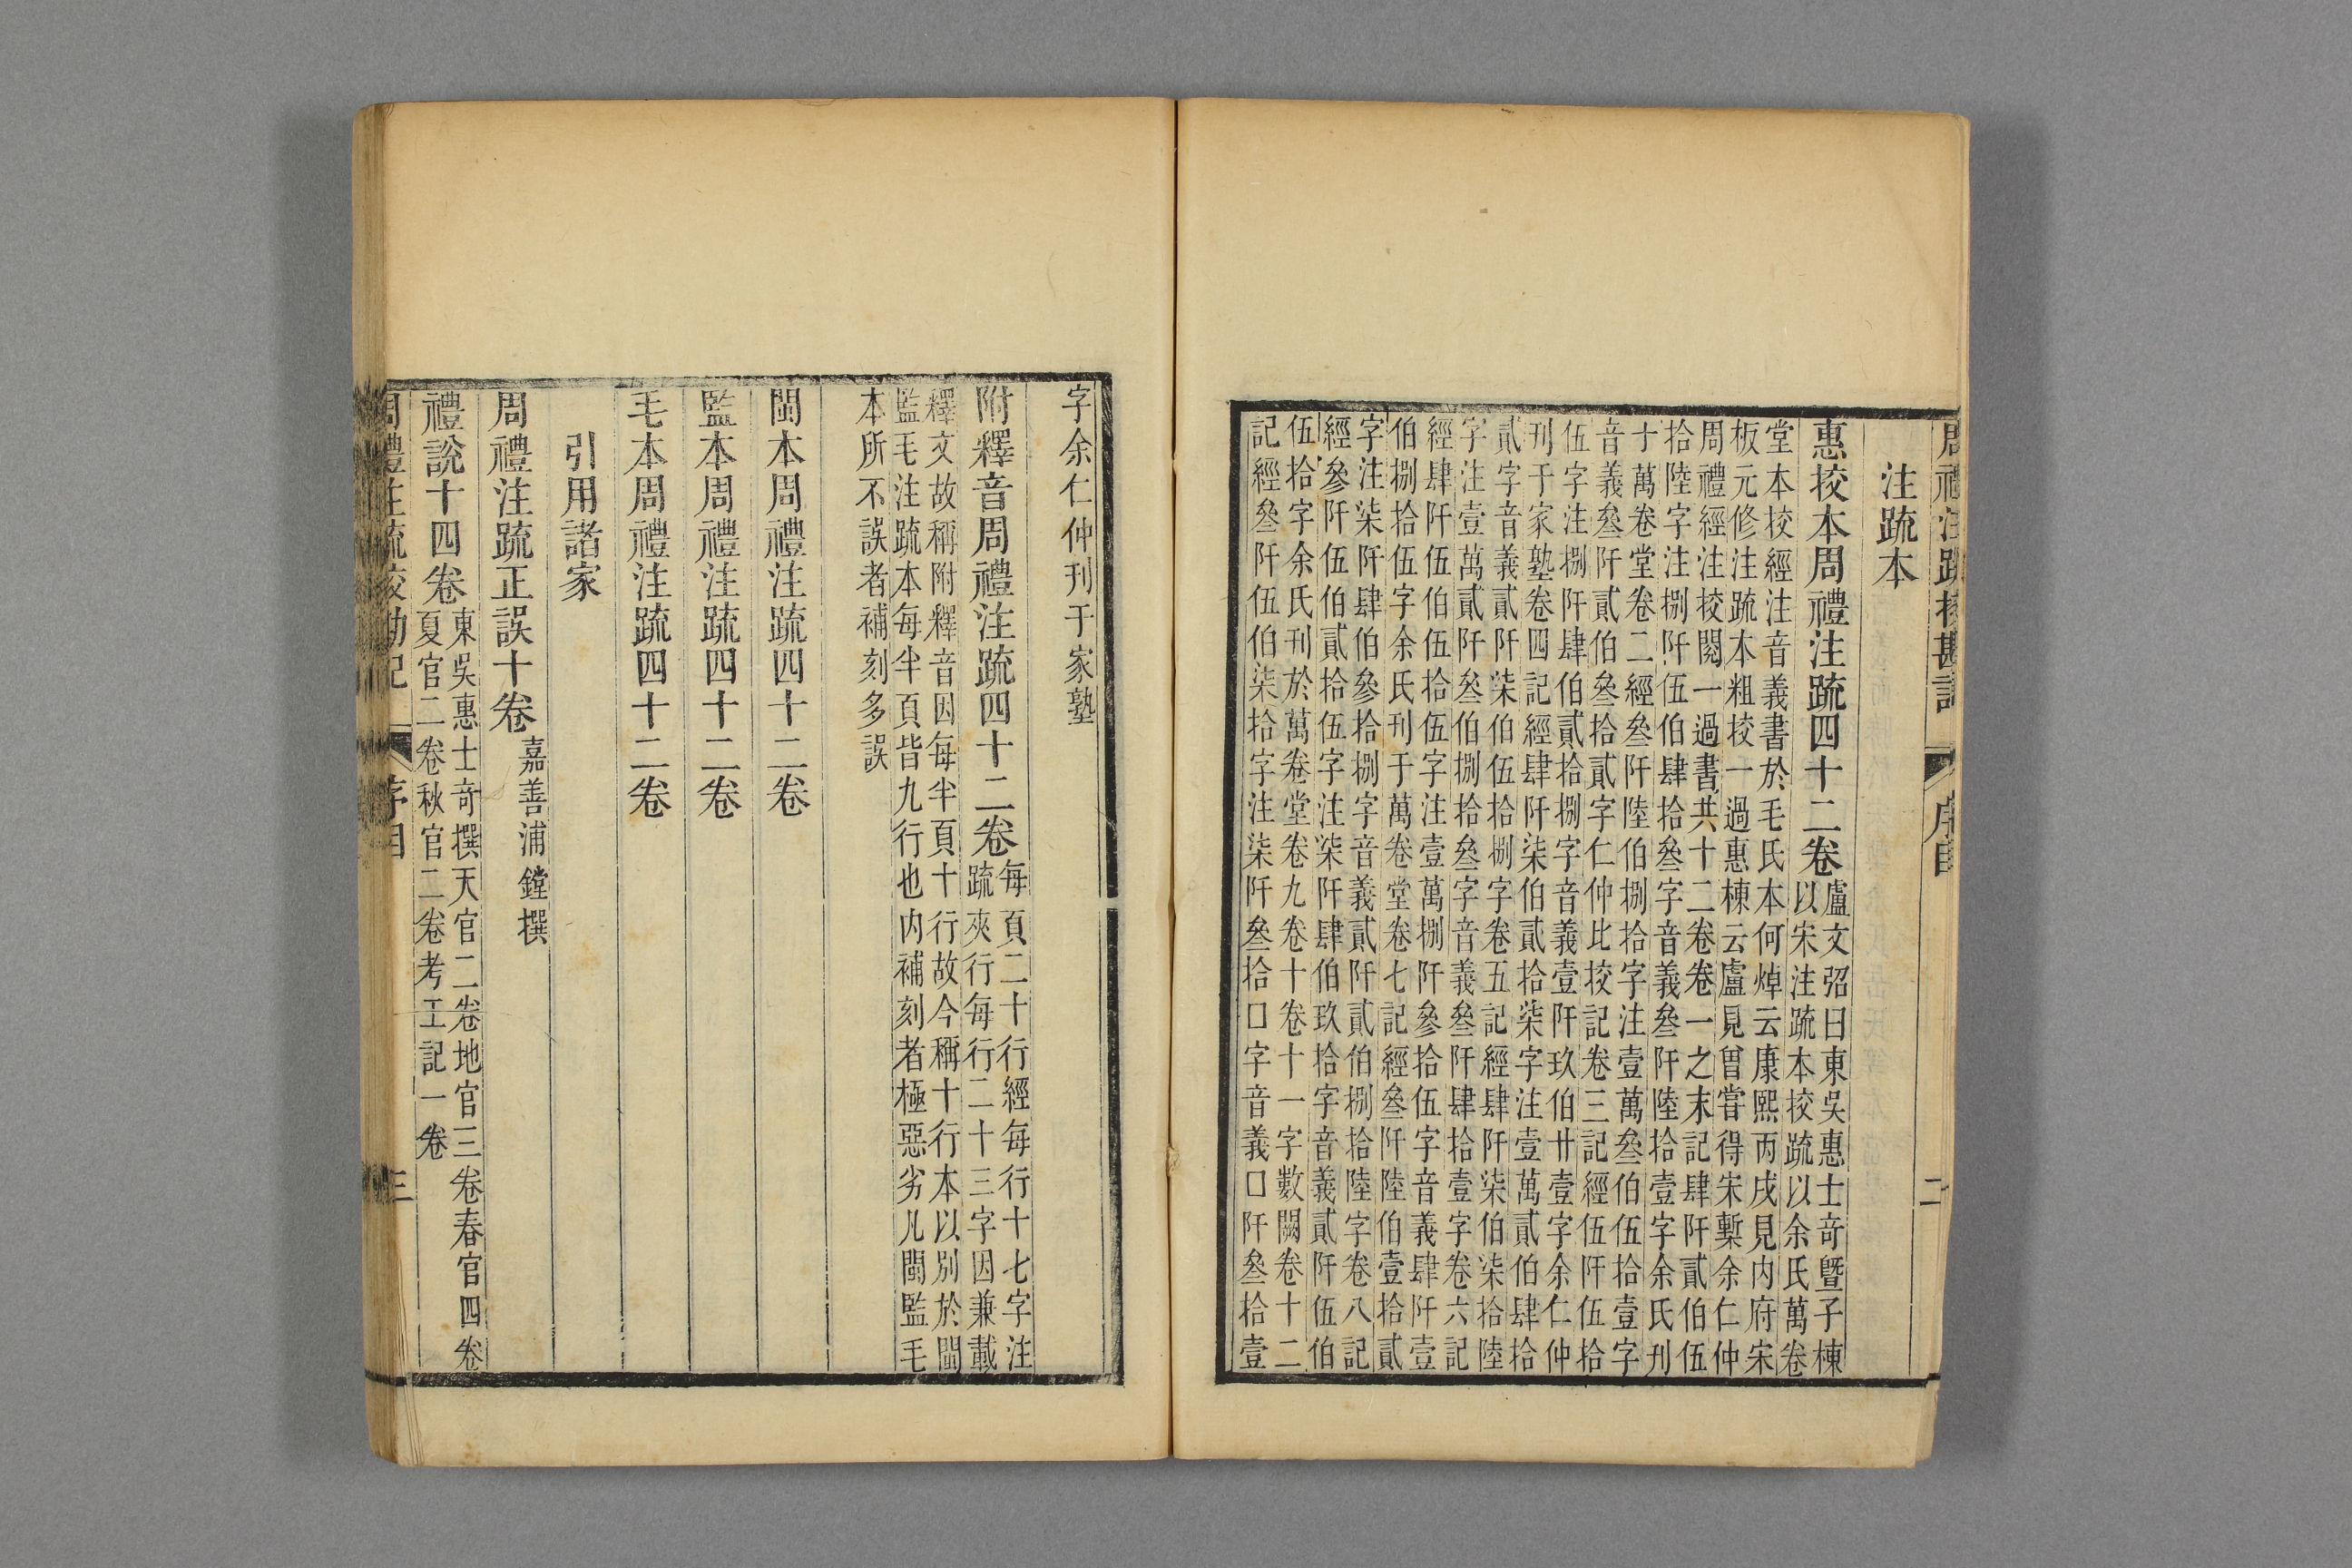 周禮注疏挍勘記 序目 二
注疏本
惠挍本周禮注疏四十二卷
盧文弨曰東吳惠士竒曁子棟
以宋注疏本挍疏以余氏萬卷
堂本挍經注音義書於毛氏本何焯云康熙丙戌見内府宋
板元修注疏本粗挍一過惠棟云盧見曾嘗得宋槧余仁仲
周禮經注挍閱一過書共十二卷卷一之末記肆阡貳伯伍
拾陸字注捌阡伍伯肆拾叄字音義叄阡陸拾壹字余氏刋
十萬卷堂卷二經叄阡陸伯捌拾字注壹萬叄伯伍拾壹字
音義叄阡貳伯叄拾貳字仁仲比挍記卷三記經伍阡伍拾
伍字注捌阡肆伯貳拾捌字音義壹阡玖伯廿壹字余仁仲
刋于家塾卷四記經肆阡柒伯貳拾柒字注壹萬貳伯肆拾
貳字音義貳阡柒伯伍拾捌字卷五記經肆阡柒伯柒拾陸
字注壹萬貳阡叄伯捌拾叄字音義叄阡肆拾壹字卷六記
經肆阡伍伯伍拾伍字注壹萬捌阡參拾伍字音義肆阡壹
伯捌拾伍字余氏刋于萬卷堂卷七記經叄阡陸伯壹拾貳
字注柒阡肆伯參拾捌字音義貳阡貳伯捌拾陸字卷八記
經參阡伍伯貳拾伍字注柒阡肆伯玖拾字音義貳阡伍伯
伍拾字余氏刋於萬卷堂卷九卷十卷十一字數闕卷十二
記經叄阡伍伯柒拾字注柒阡叄拾□字音義□阡叄拾壹
字余仁仲刊于家塾
附釋音周禮注疏四十二卷
每頁二十行經每行十七字注
疏夾行每行二十三字因兼載
釋文故稱附釋音因每半頁十行故今稱十行本以別於閩
監毛注疏本每半頁皆九行也内補刻者極惡劣凡閩監毛
本所不誤者補刻多誤
閩本周禮注疏四十二卷
監本周禮注疏四十二卷
毛本周禮注疏四十二卷
引用諸家
周禮注疏正誤十卷
嘉善浦鏜撰
禮說十四卷
東吳惠士竒撰天官二卷地官三卷春官四卷
夏官二卷秋官二卷考工記一卷
周禮注疏挍勘記 序目 三